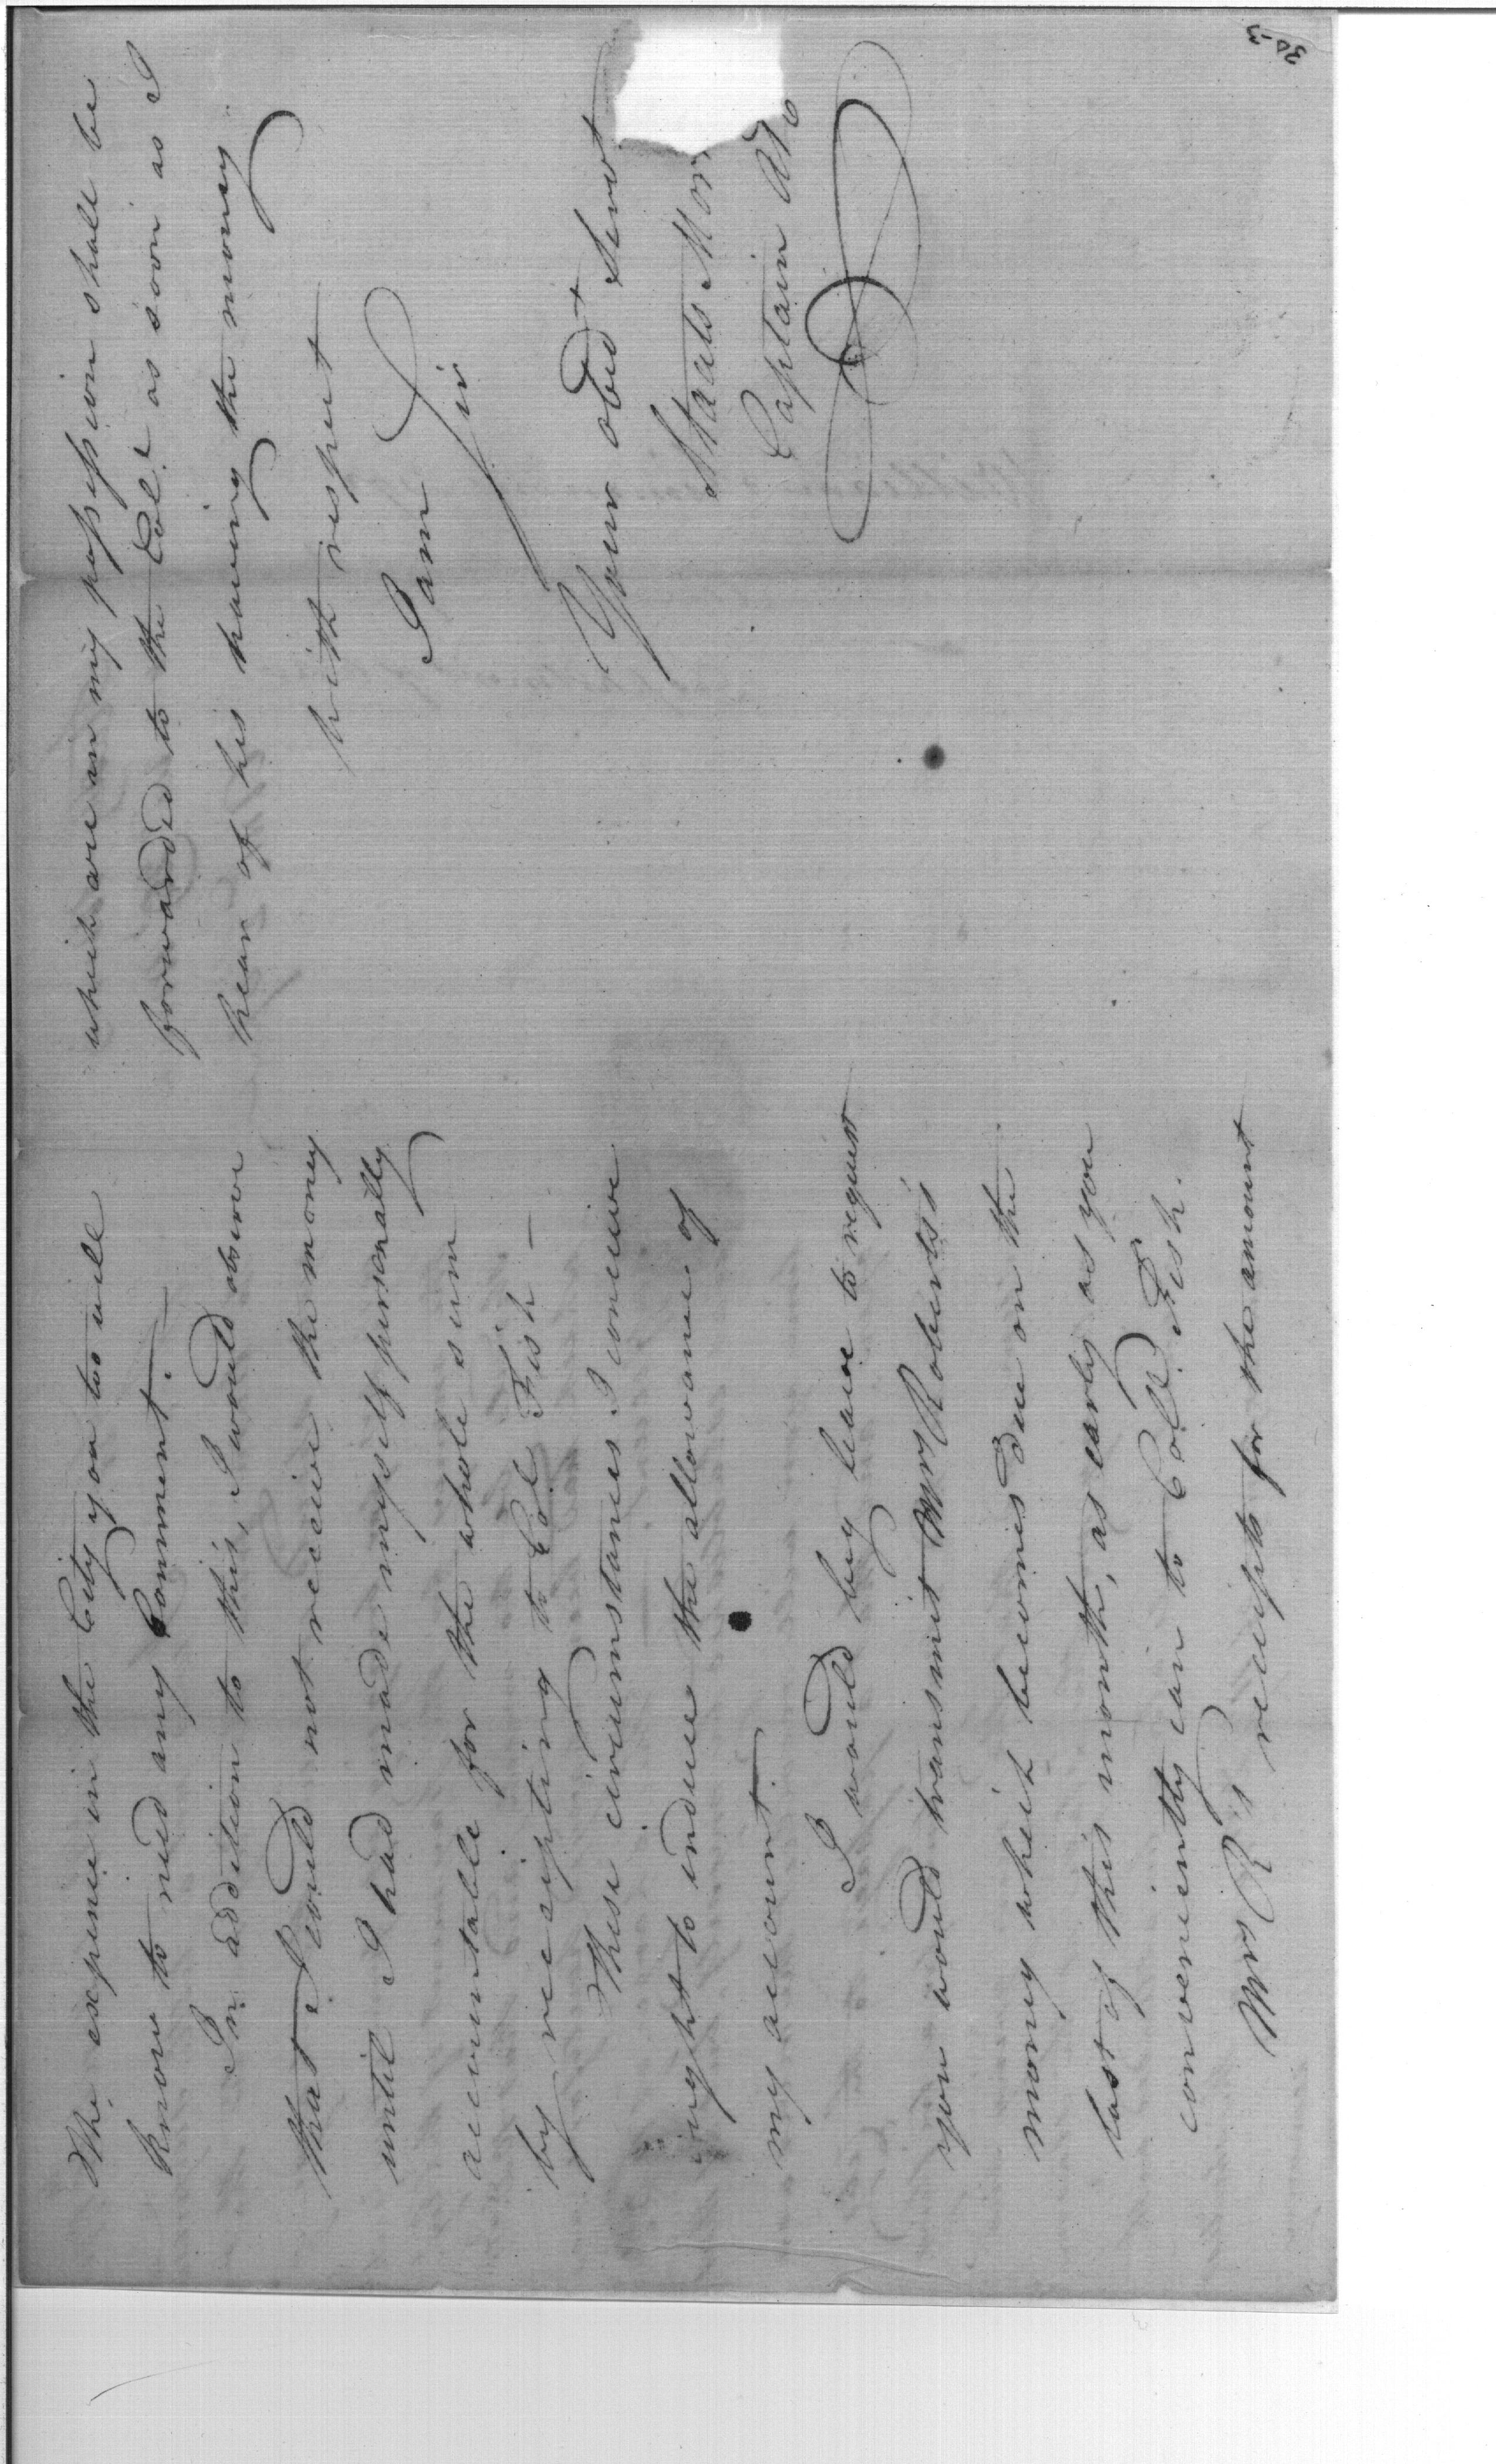 The expence in the City you too well
know to need any Comment. —
In addition to this, I would observe
that I could not receive the money
until I had made myself personally
accountable for the whole sum
by receipting to Col Fish —
These circumstances I conceive
ought to induce the allowance of
my account.
I would beg leave to request
you would transmit Mrs Roberts's
money which becomes due on the
last of this month, as early as you
conveniently can to Coll. Fish.
Mrs R's receipts for the amount
which are in my possession shall be
forwarded to the Coll as soon as I
hear of his having the money
with respect
I am Sir
Your obedt Servt
Staats Mor
Captain
30-3